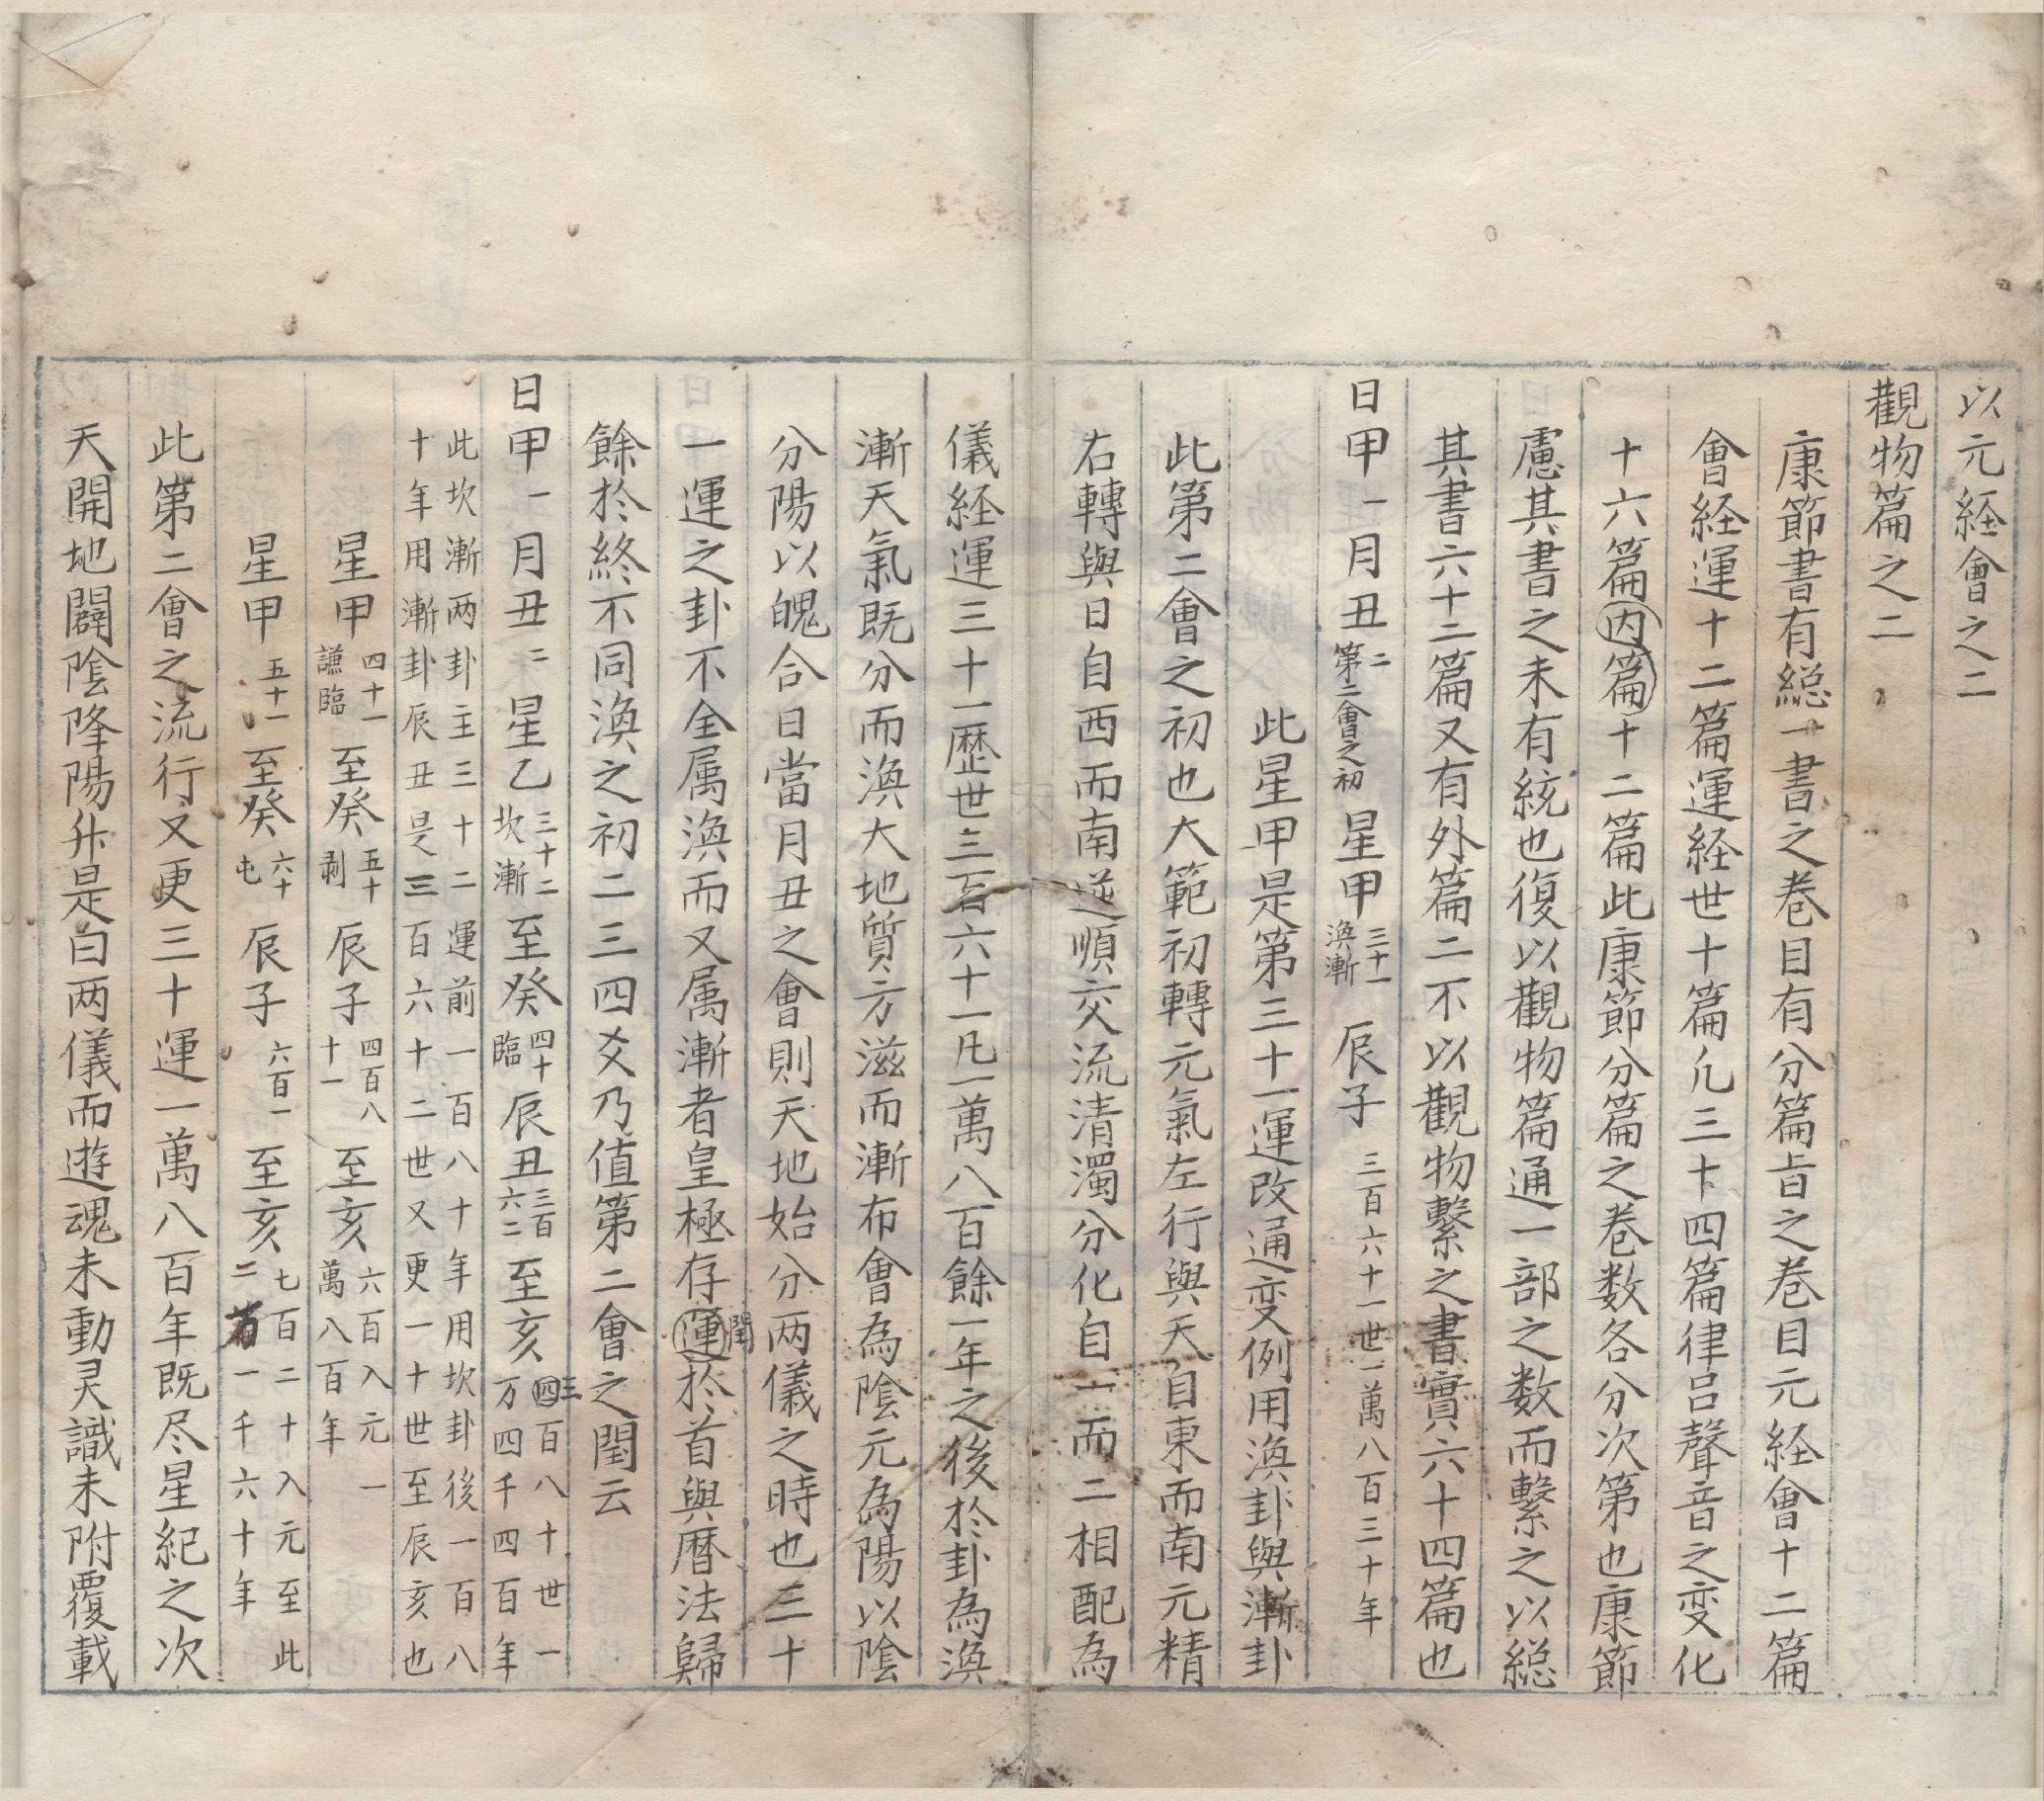 以元経會之二
觀物篇之二
康節書有総一書之巻目有分篇㫖之巻目元経會十二篇
會経運十二篇運経世十篇凢三十四篇律呂聲音之変化
十六篇内篇十二篇此康節分篇之巻数各分次第也康節
慮其書之未有統也復以觀物篇通一部之数而繫之以総
其書六十二篇又有外篇二不以觀物繫之書實六十四篇也
日甲一月丑二第二會之初星甲三十一渙漸辰子三百六十一世一萬八百三十年
此星甲是第三十一運改通変例用渙卦與漸卦
此第二會之初也大範初轉元氣左行與天自東而南元精
右轉與日自西而南逆順交流清濁分化自一而二相配為
儀経運三十一歴世三百六十一凢一萬八百餘一年之後於卦為渙
漸天氣既分而渙大地質方滋而漸布會為陰元為陽以陰
分陽以魄合日當月丑之會則天地始分两儀之時也三十
一運之卦不全属渙而又属漸者皇極存運閏於首與暦法歸
餘於終不同渙之初二三四爻乃值第二會之閏云
日甲一月丑二星乙三十二坎漸至癸四十臨辰丑三百六二至亥四三百八十世一万四千四百年
此坎漸两卦主三十二運前一百八十年用坎卦後一百八
十年用漸卦辰丑是三百六十二世又更一十世至辰亥也
星甲四十一謙臨至癸五十剥辰子四百八十一至亥六百入元一萬八百年
星甲五十一至癸六十屯辰子六百一至亥七百二十入元至此二一千六十年
此第二會之流行又更三十運一萬八百年既尽星紀之次
天開地闢陰降陽升是曰两儀而遊魂未動灵識未附覆載